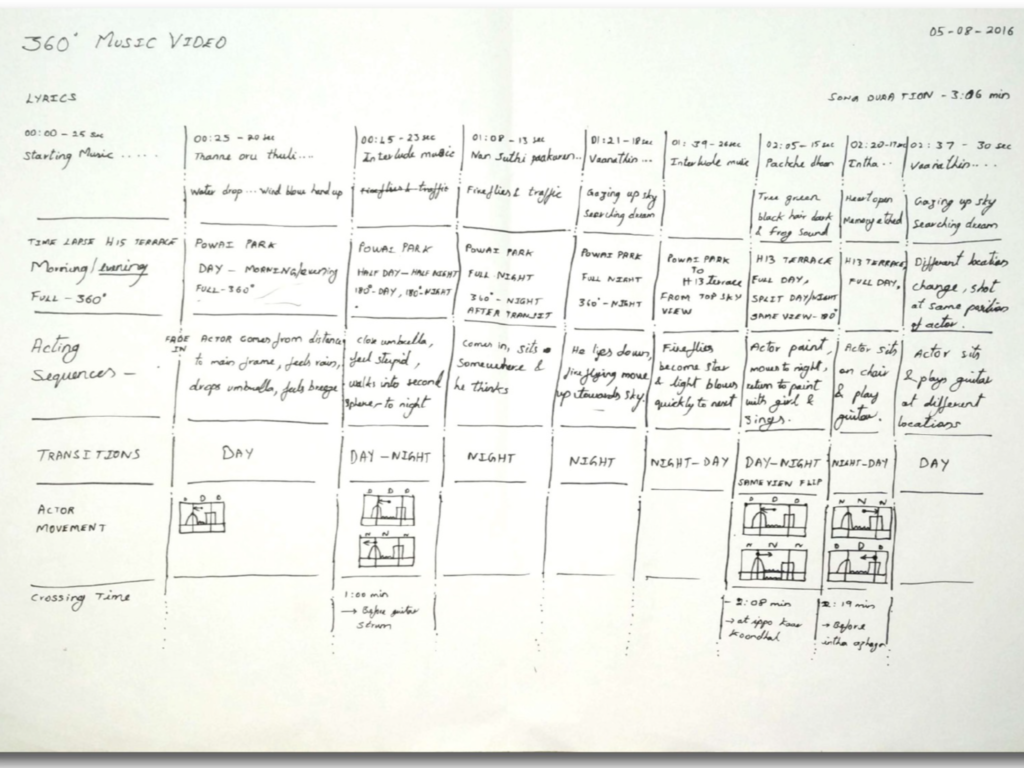 360° MUSIC VIDEO
05-08-2016
LYRICS
SONG DURATION - 3:06 min
00:00 - 25 sec
Starting Music .....
00:25 - 20 sec
Thanne oru thuli....
Water drop... Wind blow hand up
00:45 - 23 sec
Interlude music
Fireflies & traffic
01:08 - 13 sec
Nan Suthi paakuren..
Fireflies & traffic
01:21 - 18 sec
Veanathin...
Gazing up sky
Searching dream
01:39 - 26 sec
Interlude music
02:05 - 15 sec
Pachche
Tree green
black hair dark
& Frog sound
02:20 - 17 sec
Intha..
Heart open
Memory etched
02:37 - 30 sec
Veanathin....
Gazing up sky
Searching dream
TIME LAPSE H15 TERRACE
Morning/evening
FULL - 360°
POWAI PARK
DAY - MORNING/evening
FULL - 360°
POWAI PARK
HALF DAY - HALF NIGHT
180°-DAY, 180°-NIGHT
POWAI PARK
FULL NIGHT
360° - NIGHT
AFTER TRANSIT
POWAI PARK
FULL NIGHT
360°-NIGHT
POWAI PARK
TO
H13 terrace
FROM TOP SKY
VIEW
H13 TERRACE
FULL DAY,
SPLIT DAY/NIGHT
SAME VIEW-
H13 TERRACE,
FULL DAY,
Different location
change, shot
at same position
of actor.
Acting
Sequences -
FADE
IN
ACTOR comes from distance
to main frame, feels rain,
drops umbrella, feels breeze
close umbrella,
feel stupid,
walks into second
sphere - to night
comes in, sits
Somewhere &
he thinks
He lies down,
fireflying move
up towards sky.
Fireflies
become star
& light blows
quickly to next
Actor paint,
moves to night,
return to paint
with girl &
sings.
Actor sits
on chair
& play
guitar.
Actor sits
& plays guitar
at different
locations
TRANSITIONS
DAY
DAY - NIGHT
NIGHT
NIGHT
NIGHT-DAY
DAY-NIGHT
SAME VIEW FLIP
NIGHT-DAY
DAY
ACTOR
MOVEMENT
D D D
D D D
N N N
D D D
N N N
N N N
D D D
Crossing Time
1:00 min
→ Before guitar
strum
- 2:08 min
→ at ippo Kaar
Koondhal
2:19 min
→ Before
intha